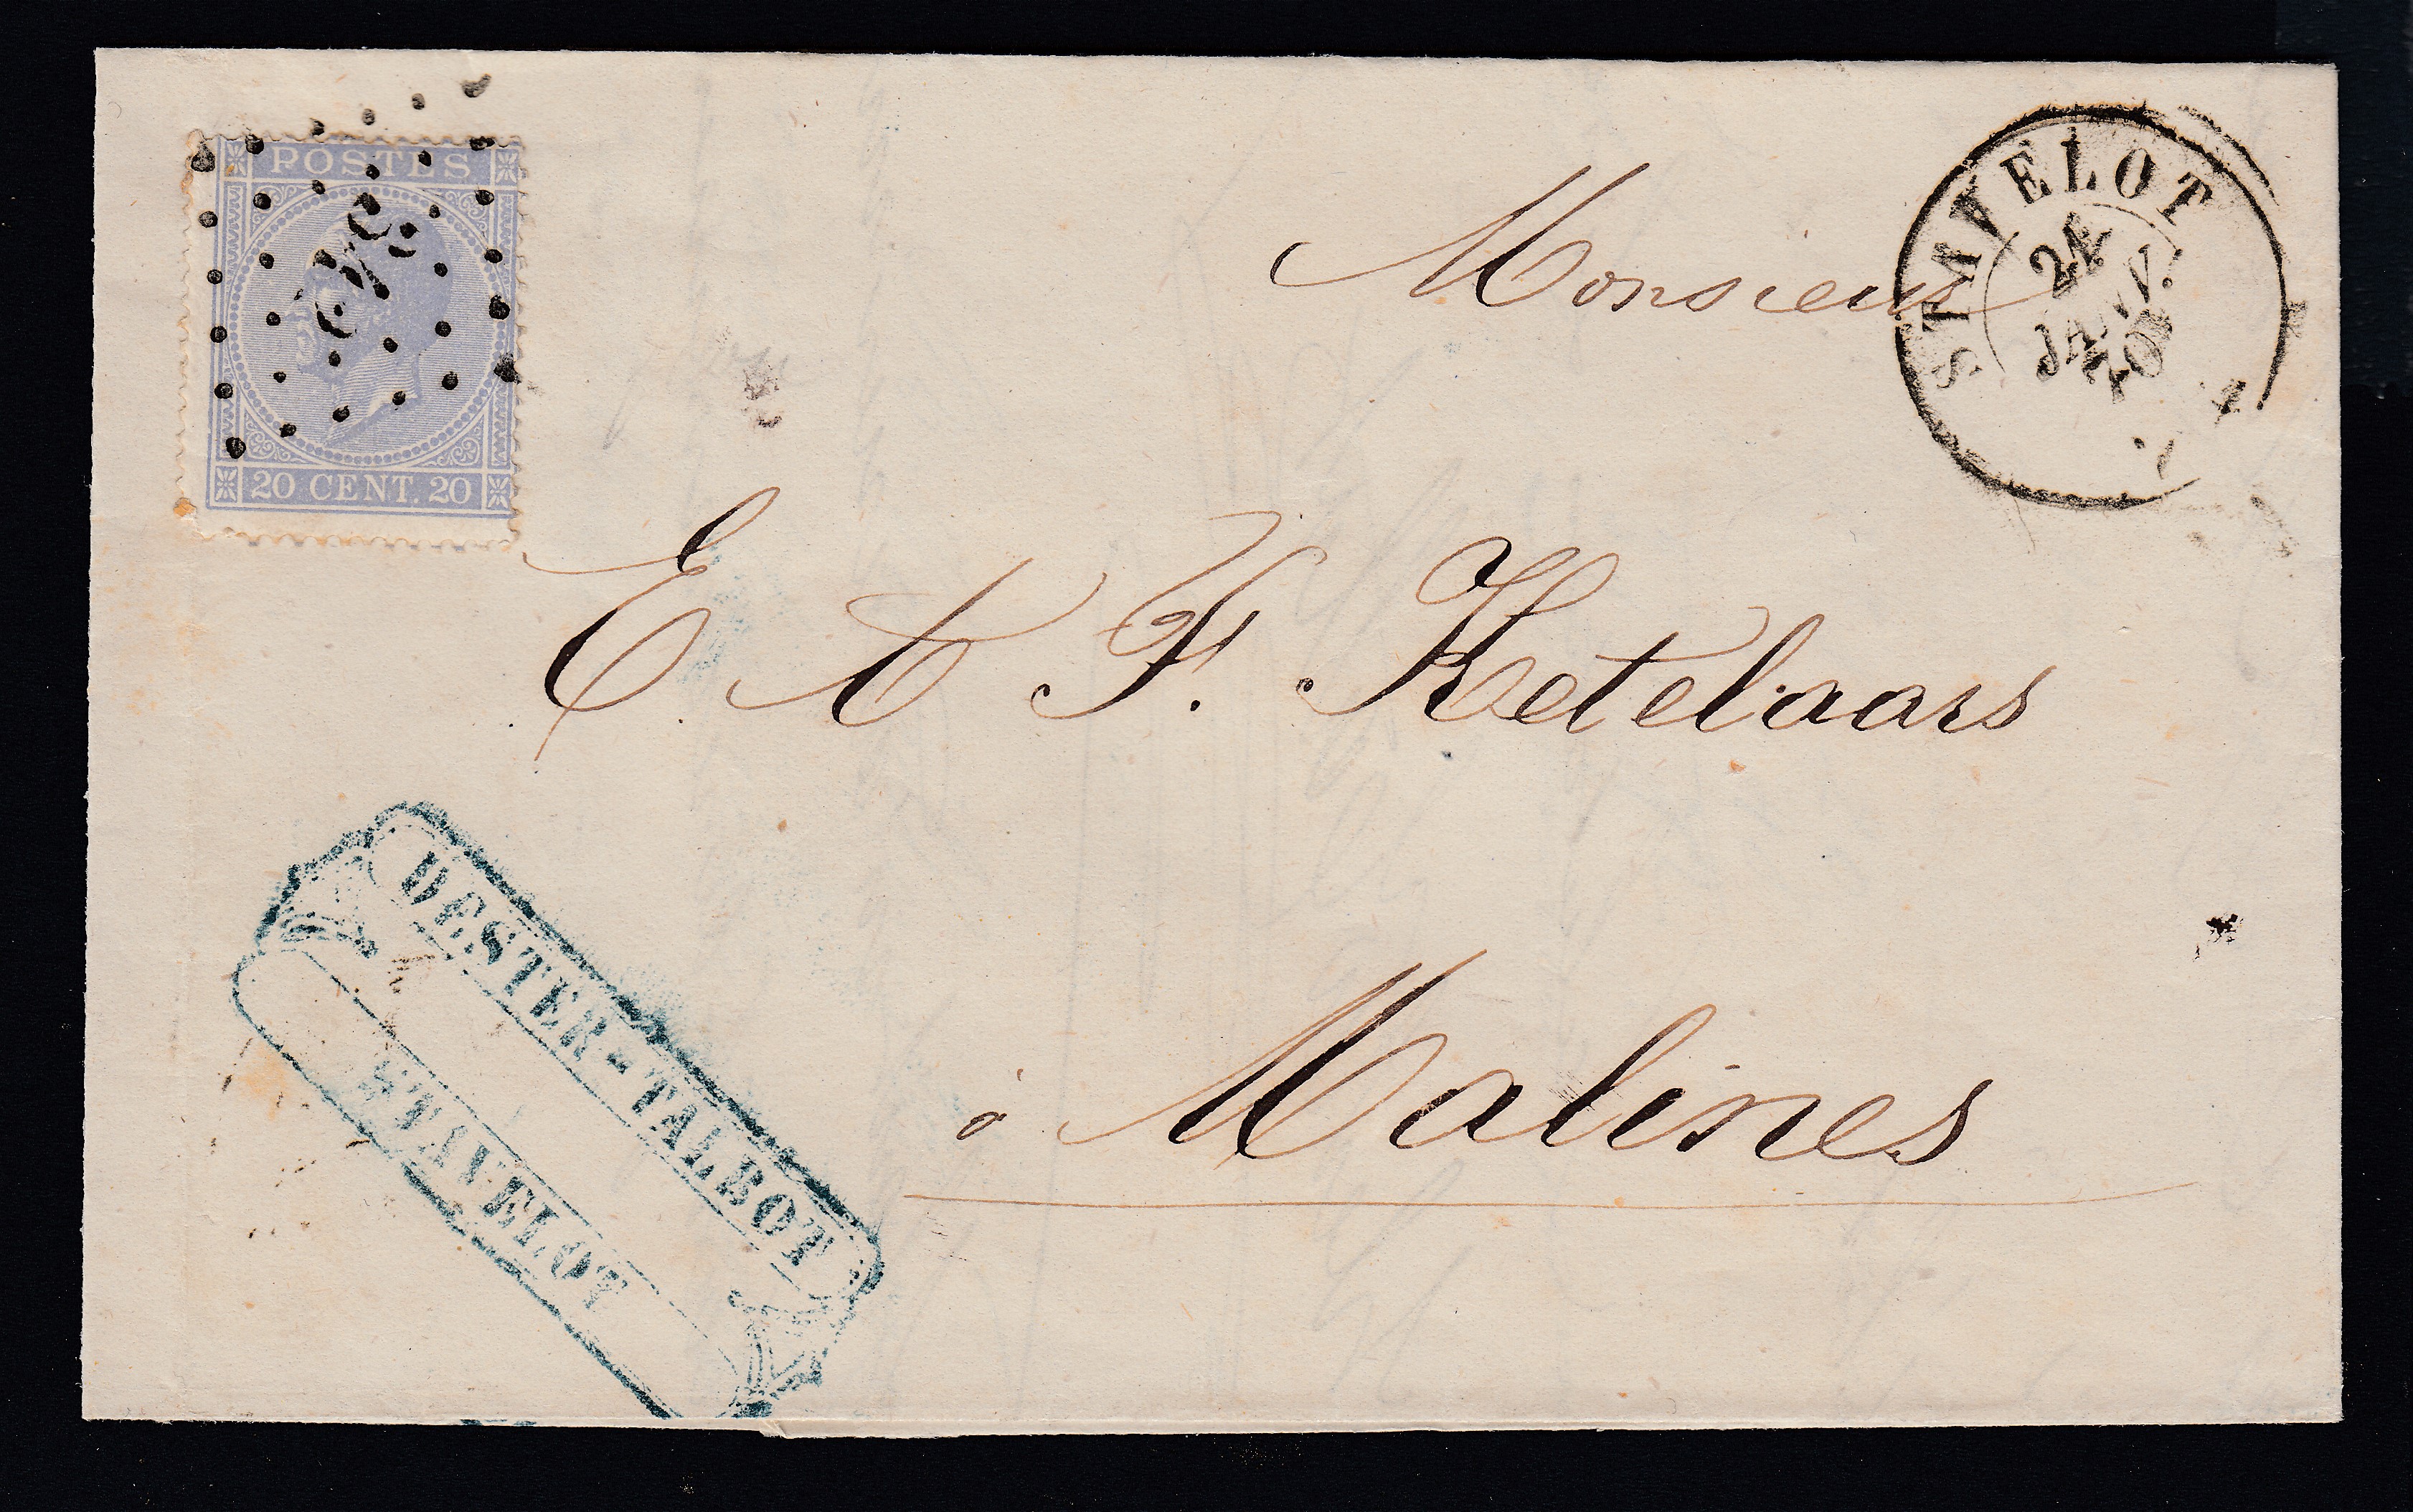 POSTES
20 CENT. 20
STAVELOT
JANV.
70
Monsieur
F. Ketelaars
à Malines
DESTER-TALBOT
STAVELOT